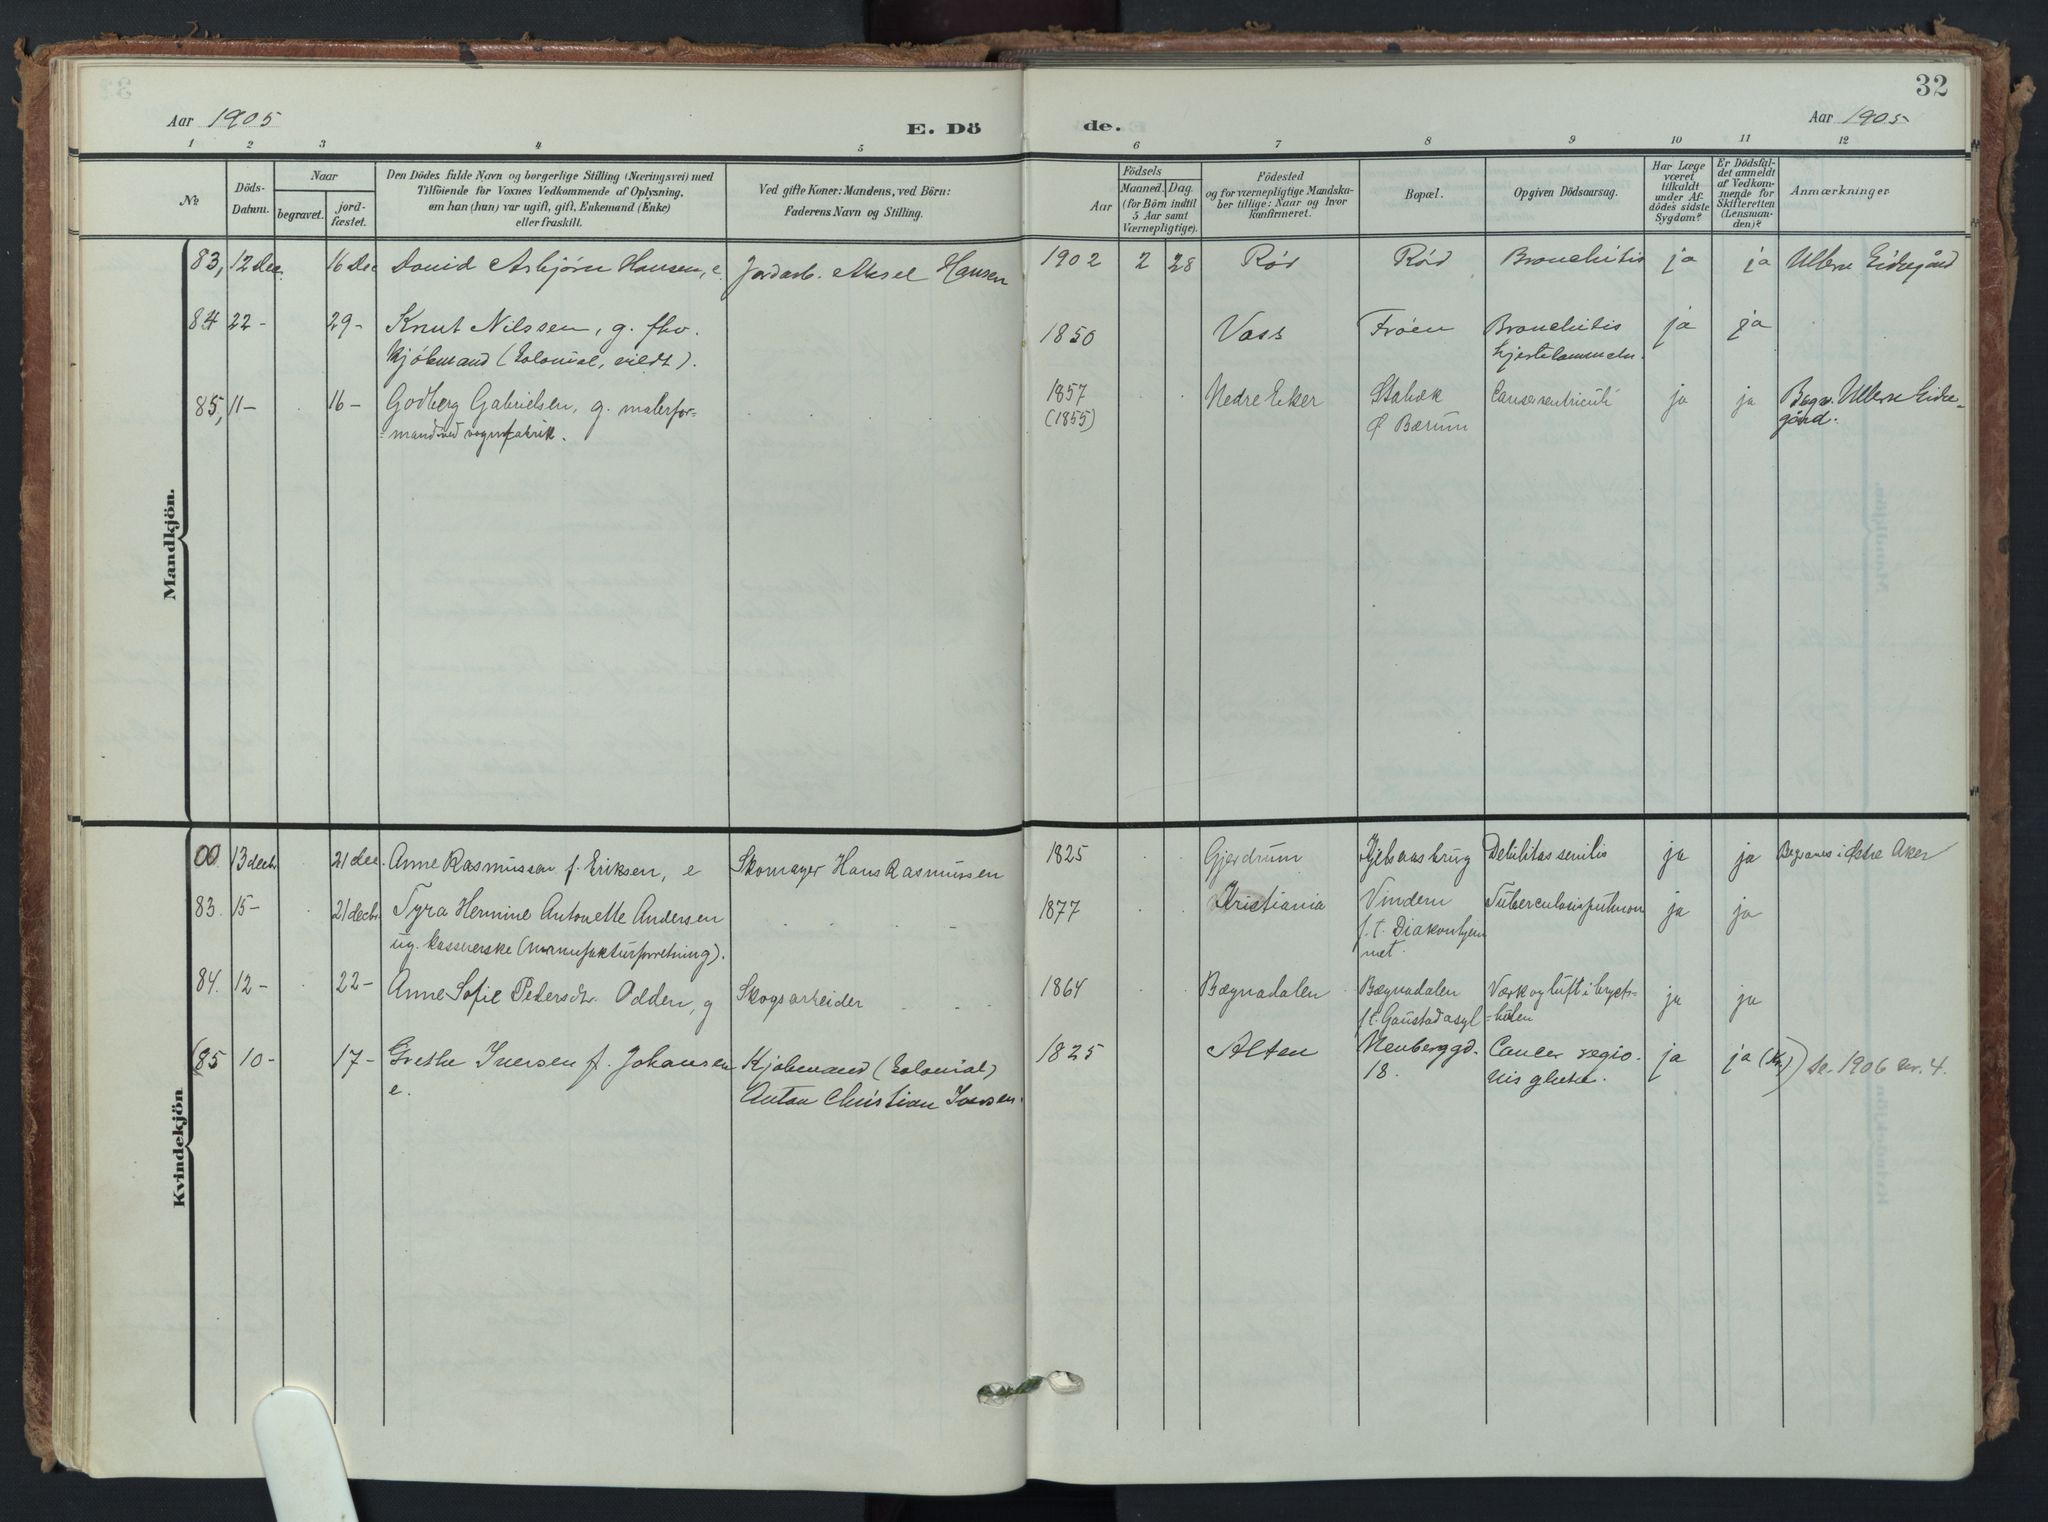 32
Aar 1905
E. Dö
de.
Aar 1905
1 2 3 4 5 6 7 8 9 10 11 12
№
Döds-
Datum.
Naar
begravet.
jord-
fæstet.
Den Dödes fulde Navn og borgerlige Stilling (Næringsvei) med
Tilföiende for Voxnes Vedkommende af Oplysning,
om han (hun) var ugift, gift, Enkemand (Enke)
eller fraskilt.
Ved gifte Koner: Mandens, ved Börn:
Faderens Navn og Stilling.
Aar
Födsels
Maaned. Dag.
(for Börn indtil
5 Aar samt
Værnepligtige).
Födested
og for værnepligtige Mandska-
ber tillige: Naar og hvor
konfirmeret.
Bopæl.
Opgiven Dödsaarsag.
Har Læge
været
tilkaldt
under Af-
dödes sidste
Sygdom?
Er Dödsfal-
det anmeldt
af Vedkom-
mende for
Skifteretten
(Lensman-
den)?
Anmærkninger
Mandkjön.
83, 12 dec. 16 dec David Asbjørn Hansen, e. Jordarb. Aksel Hansen 1902 2 28 Rød Rød Bronchitis ja ja Ullern Eidregård
84 22- 29- Knut Nilssen, g. fhv.
kjøbmand (Kolonial, vildt).
1850 Voss Frøen Bronchitis
hjertelammelse.
ja ja
85, 11- 16- Godberg Gabrielsen, g. malerfor-
mand ved vognfabrik.
1857
(1855)
Nedre Eker Stabæk
Ø Bærum
Cancer ventriculi ja ja Begr. Ullern Eidre-
gård.
Kvindekjön
00 13 decbr 21 dec. Anne Rasmussen f. Eriksen, e Skomager Hans Rasmussen 1825 Gjerdrum Kjelsaas brug Debilitas senilis ja ja Begraves i Østre Aker
83. 15- 21 decbr. Tyra Hermine Antonette Andersen
ug. kassererske (manufakturforretning).
1877 Kristiania Vindern
f.t. Diakonhjem
met.
Tuberculosis pulmon ja ja
84. 12- 22- Anne Sofie Pedersdtr. Odden, g Skogsarbeider 1864 Bægnadalen Bægnadalen
f.t. Gaustad asyl
Værk og luft i bryst-
hulen
ja ja
(85 10- 17- Grethe Iversen f. Johansen
e.
Kjøbmand (Kolonial)
Anton Christian Iversen.
1825 Alten Neuberggd.
18.
Cancer regio-
nis
ja ja (Kr.) Se. 1906 nr. 4.